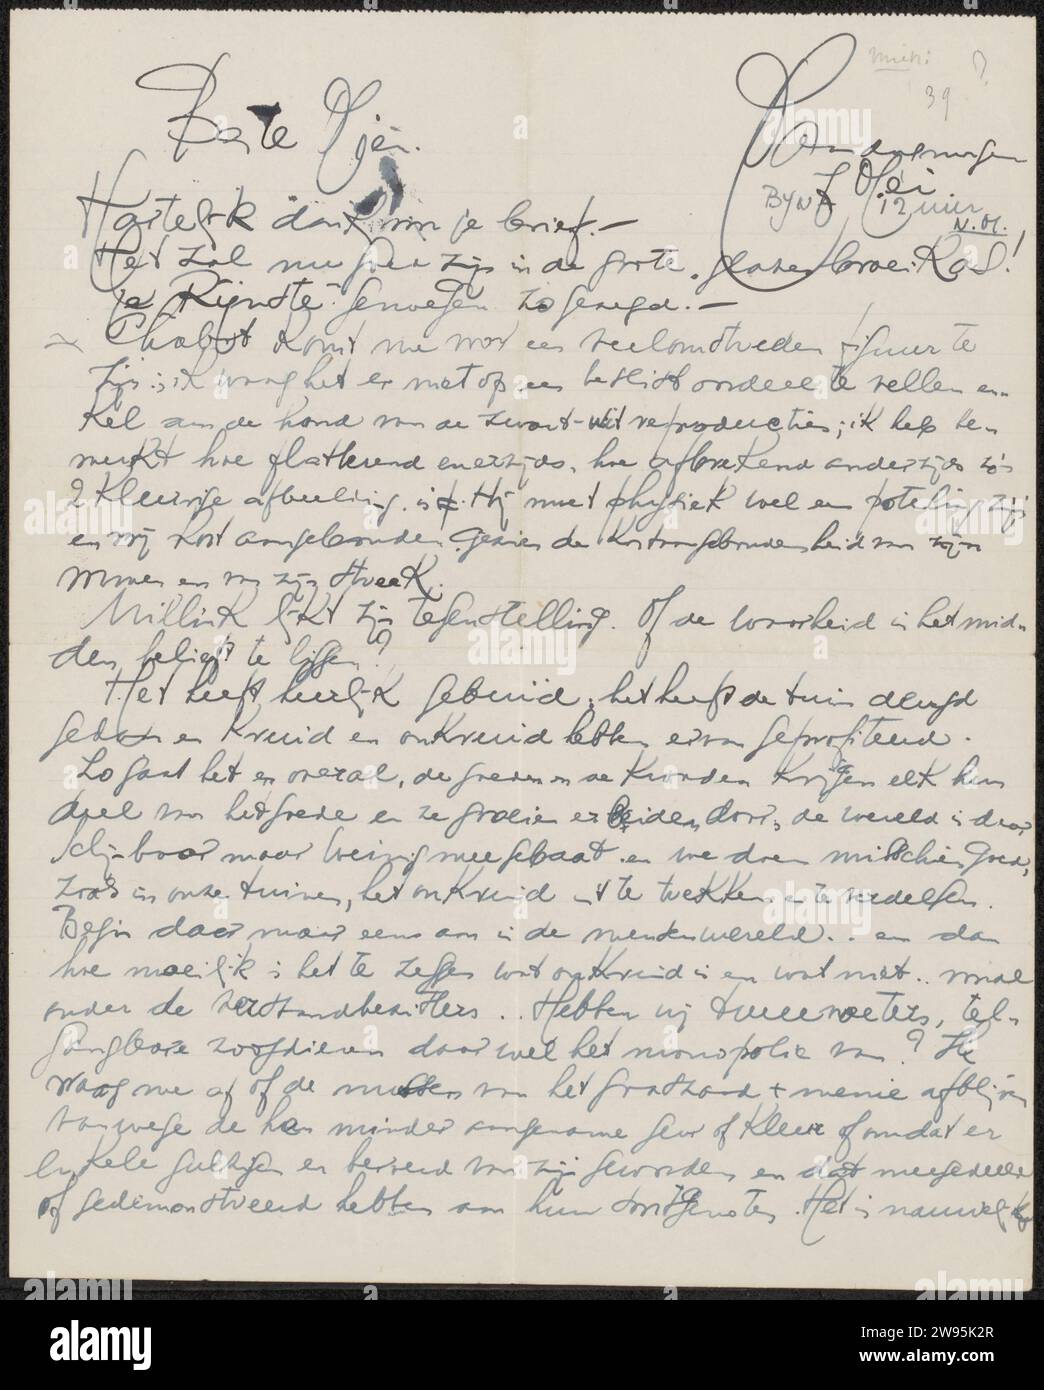 Mei
39
Beste Ojen.
7 Mei
Bijna 12 uur
N.M.
Hartelijk dank voor je brief.—
Het zal nu goed zijn in de grote glazen broeikas!
genoegen zogezegd.—
Chabot komt me voor een veelomstreden figuur te
zijn; ik waag het er niet op een beslist oordeel te vellen en-
kel aan de hand van de zwart-wit reproducties; ik heb be-
merkt hoe flatterend enerzijds, hoe afbrekend anderzijds zo'n
2 kleurige afbeelding is. Hij moet physiek wel een poteling zijn
en vrij vast aangebonden, gezien de kortaangebondenheid van zijn
en van zijn streek.
Millink lijkt zijn tegenstelling. Of de waarheid in het mid-
den belieft te liggen?
Het heeft heerlijk gebuid; het heeft de tuin deugd
gedaan en kruid en onkruid hebben ervan geprofiteerd.
Zo gaat het en overal, de goeden en de kwaden krijgen elk hun
deel van het goede en ze groeien er beiden door; de wereld is daar
schijnbaar maar weinig mee gebaat en we doen misschien goed,
zoals in onze tuinen, het onkruid uit te trekken en te verdelgen.
Begin daar maar eens aan in de mensenwereld.. en dan
hoe moeilijk is het te zeggen wat onkruid is en wat niet.. vooral
onder de verstandbezitters.. Hebben wij tweevoeters, tel-
gangbare zoogdieren daar wel het monopolie van? Ik
vraag me af of de mussen van het graszaad + menie afblijven
vanwege de hen minder aangename geur of kleur of omdat er
enkele gulzigen er beroerd van zijn geworden en dat meegedeeld
of gedemonstreerd hebben aan hun soortgenoten. Het is nauwelijks
alamy
Image ID: 2W95K2R
www.alamy.com